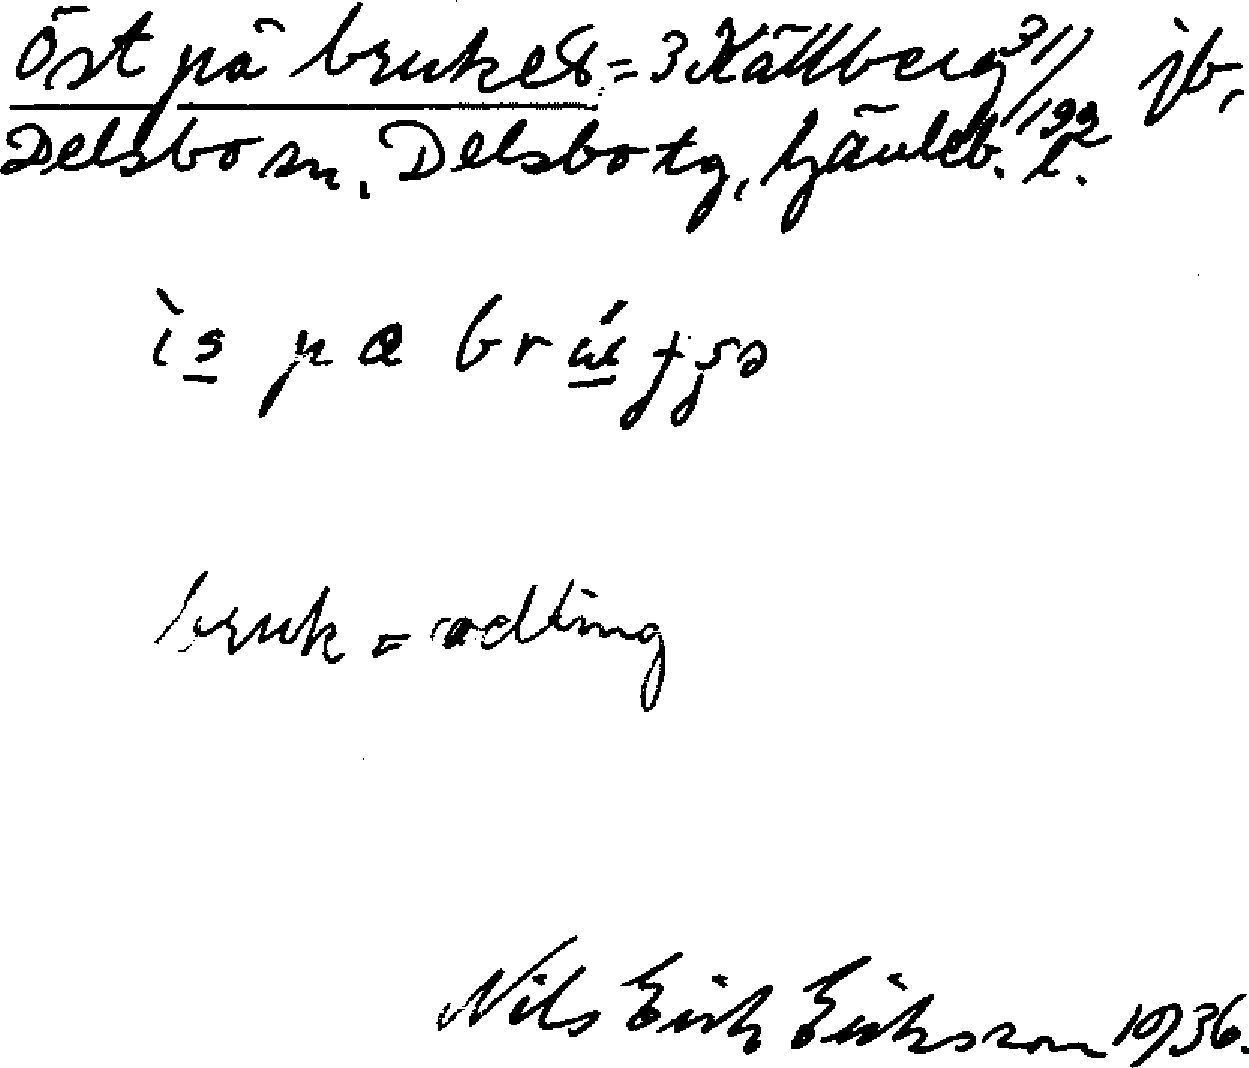 Öst på bruket = 3 Källberg 3/1 jb,
Delsbo sn. Delsbo tg, Gävleb. l.
bruk = odling
Nils Erik Eriksson 1936.